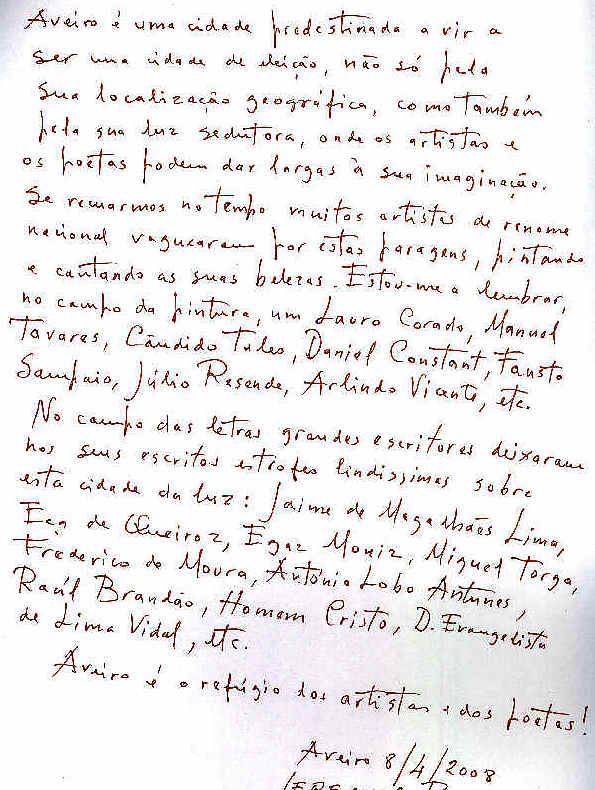 Aveiro é uma cidade predestinada a vir a
ser uma cidade de eleição, não só pela
sua localização geográfica, como também
pela sua luz sedutora, onde os artistas e
os poetas podem dar largas à sua imaginação.
Se recuarmos no tempo muitos artistas de renome
nacional vaguearam por estas paragens, pintando
e cantando as suas belezas. Estou-me a lembrar,
no campo da pintura, um Lauro Corado, Manuel
Tavares, Cândido Teles, Daniel Constant, Fausto
Sampaio, Júlio Resende, Arlindo Vicente, etc.
No campo das letras grandes escritores deixaram
nos seus escritos estrofes lindíssimas sobre
esta cidade da luz: Jaime de Magalhães Lima,
Eça de Queiroz, Egaz Moniz, Miguel Torga,
Frederico de Moura, António Lobo Antunes,
Raúl Brandão, Homem Cristo, D. Evangelista
de Lima Vidal, etc.
Aveiro é o refúgio dos artistas e dos poetas!
Aveiro 8/4/2008